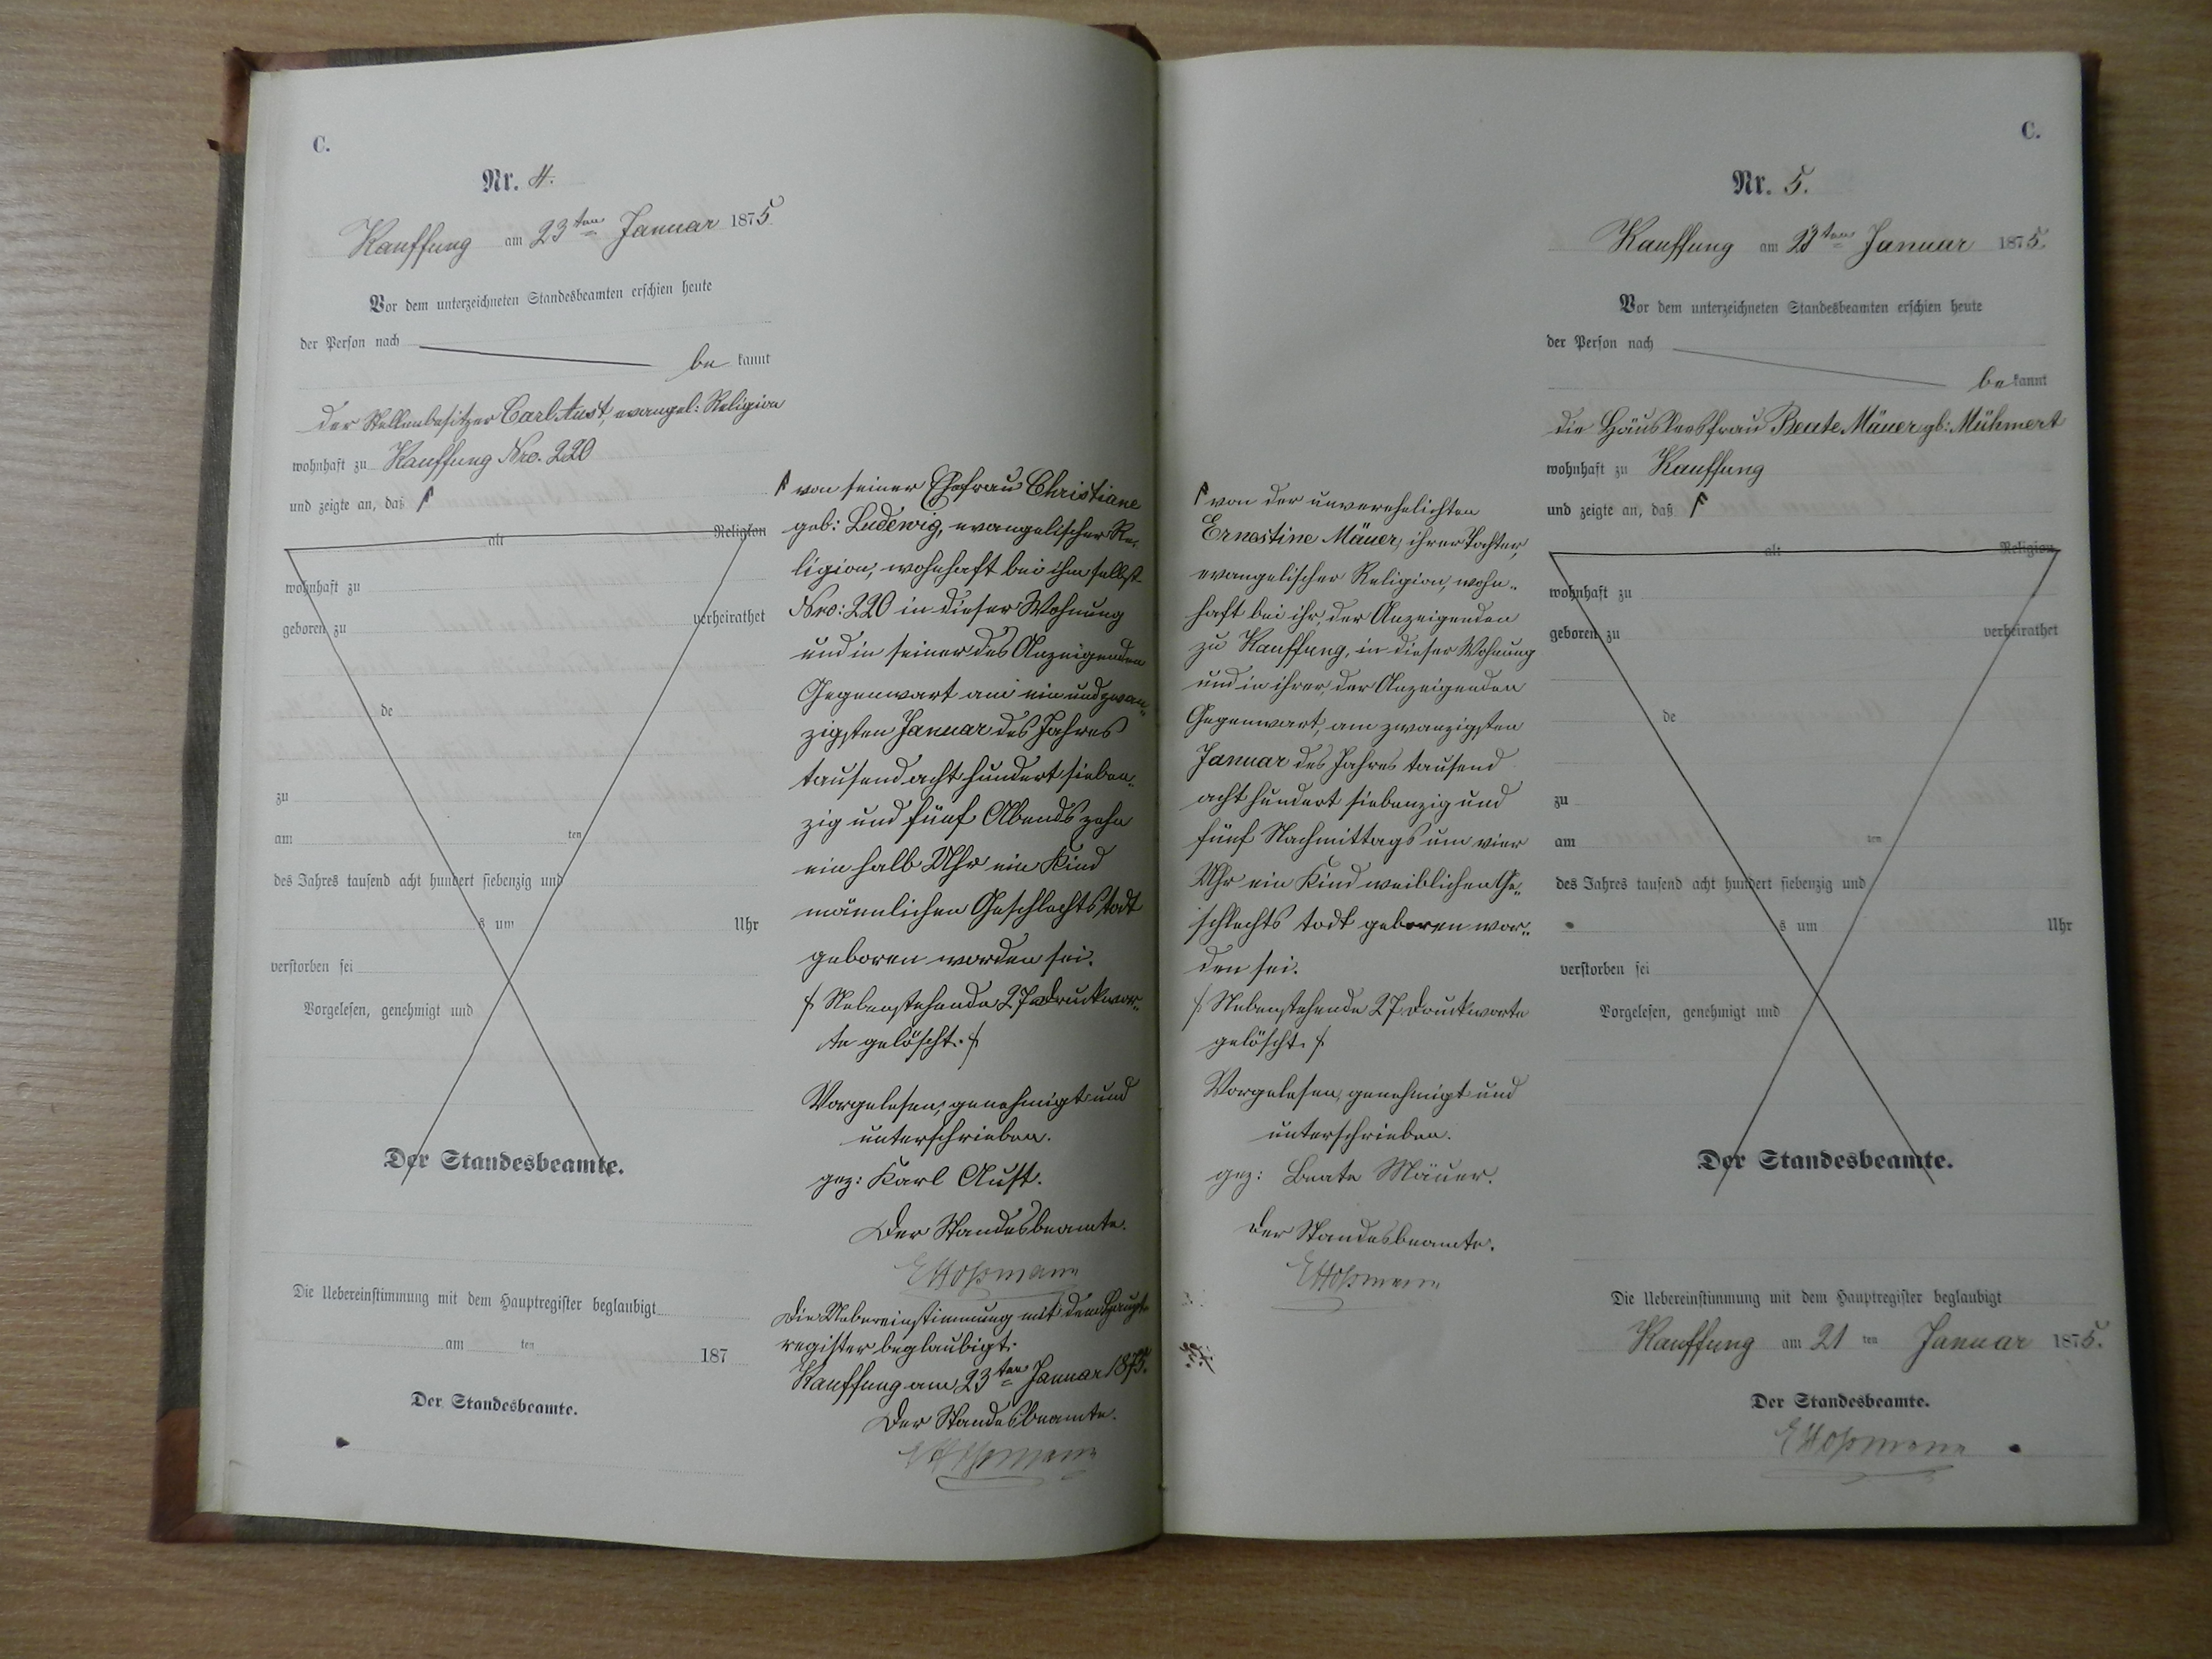 C.
Nr. 4.
Kauffung am 23ten Januar 1875.
Vor dem unterzeichneten Standesbeamten erschien heute
der Person nach
be kannt
der Stellenbesitzer Carl Aust, evangel: Religion
wohnhaft zu Kauffung Nro. 220
und zeigte an, daß
alt Religion
wohnhaft zu
geboren zu verheirathet
de
zu
am ten
des Jahres tausend acht hundert siebenzig und
s um Uhr
verstorben sei
Vorgelesen, genehmigt und
Der Standesbeamte.
Die Uebereinstimmung mit dem Hauptregister beglaubigt
am ten 187
Der Standesbeamte.
von seiner Ehefrau Christiane
geb: Ludewig, evangelischer Re-
ligion, wohnhaft bei ihm selbst
Nro: 220 in dieser Wohnung
und in seiner des Anzeigenden
Gegenwart am ein und zwan-
zigsten Januar des Jahres
tausend acht hundert sieben-
zig und fünf Abends zehn
ein halb Uhr ein Kind
männlichen Geschlechts todt
geboren worden sei.
Nebenstehende 27 Druckwor-
te gelöscht.
Vorgelesen, genehmigt und
unterschrieben.
gez: Karl Aust.
Der Standesbeamte.
Die Uebereinstimmung mit dem Haupt-
register beglaubigt.
Kauffung am 23ten Januar 1875.
Der Standesbeamte.
von der unverehelichten
Ernestine Mäuer, ihrer Tochter,
evangelischer Religion, wohn-
haft bei ihr, der Anzeigenden
zu Kauffung, in dieser Wohnung
und in ihrer, der Anzeigenden
Gegenwart, am zwanzigsten
Januar des Jahres tausend
acht hundert siebenzig und
fünf Nachmittags um vier
Uhr ein Kind weiblichen Ge-
schlechts todt geboren wor-
den sei.
Nebenstehende 27 Druckworte
gelöscht.
Vorgelesen, genehmigt und
unterschrieben.
gez: Beate Mäuer.
Der Standesbeamte.
C.
Nr. 5.
Kauffung am 23ten Januar 1875.
Vor dem unterzeichneten Standesbeamten erschien heute
der Person nach
be kannt
die Häuslersfrau Beate Mäuer gb: Mühmert
wohnhaft zu Kauffung
und zeigte an, daß
alt Religion
wohnhaft zu
geboren zu verheirathet
de
zu
am ten
des Jahres tausend acht hundert siebenzig und
s um Uhr
verstorben sei
Vorgelesen, genehmigt und
Der Standesbeamte.
Die Uebereinstimmung mit dem Hauptregister beglaubigt
Kauffung am 21 ten Januar 1875.
Der Standesbeamte.